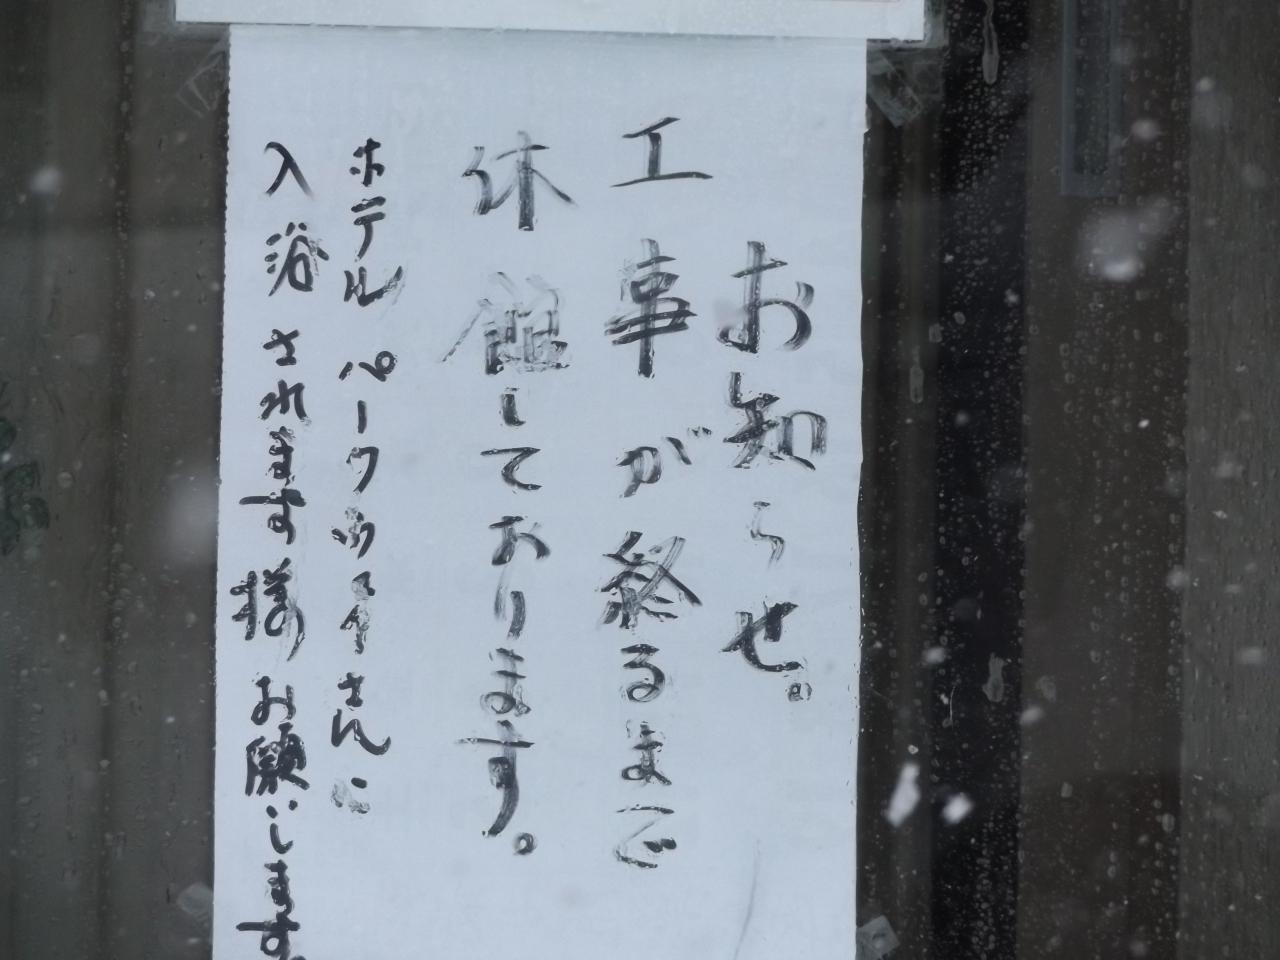 お知らせ。
工事が終るまで
休館しております。
ホテルパークウェイさんに
入浴されます様お願いします。